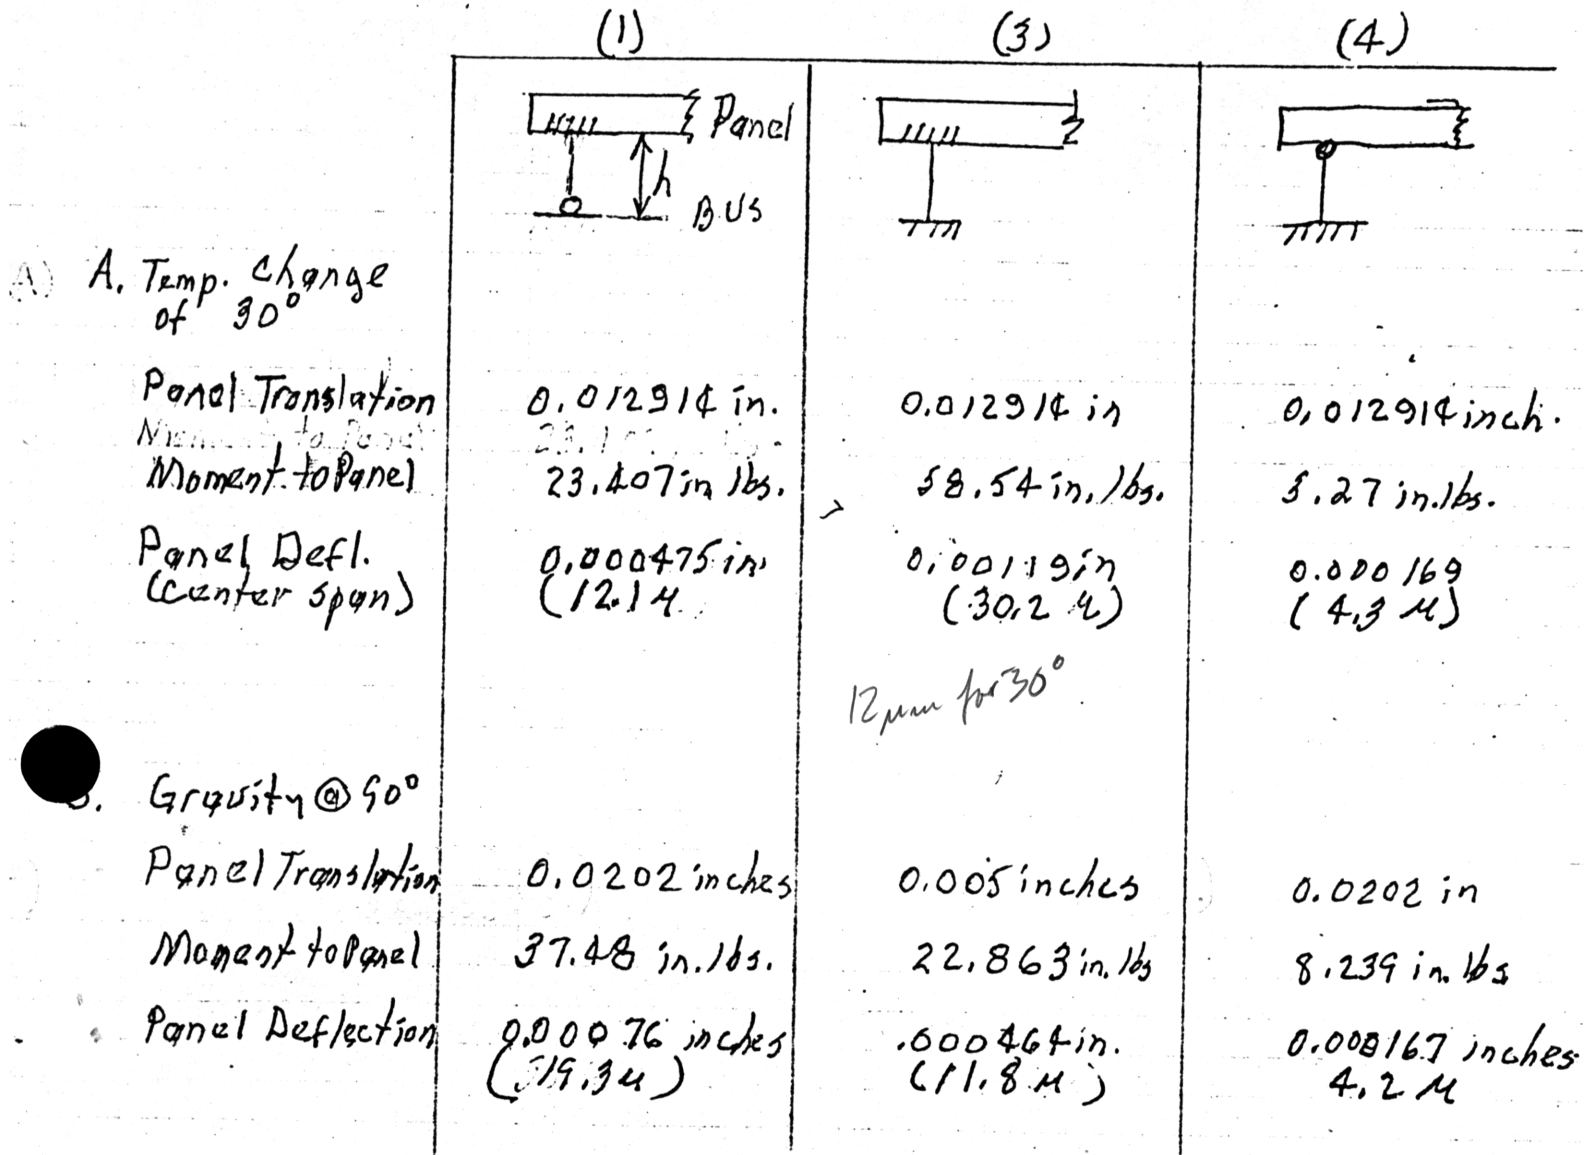 (1) (3) (4)
Panel
h
BUS
A. Temp. Change
of 30°
Panel Translation 0.012914 in. 0.012914 in 0.012914 inch.
Moment to Panel 23.407 in lbs. 58.54 in. lbs. 5.27 in. lbs.
Panel Defl. 0.000475 in. 0.00119 in 0.000169
(Center span) (12.1 μ (30.2 μ) (4.3 μ)
12 μm for 30°
Gravity @ 90°
Panel Translation 0.0202 inches 0.005 inches 0.0202 in
Moment to Panel 37.48 in. lbs. 22.863 in. lbs 8.239 in. lbs
Panel Deflection 0.00076 inches .000464 in. 0.000167 inches
(19.3 μ) (11.8 μ) 4.2 μ